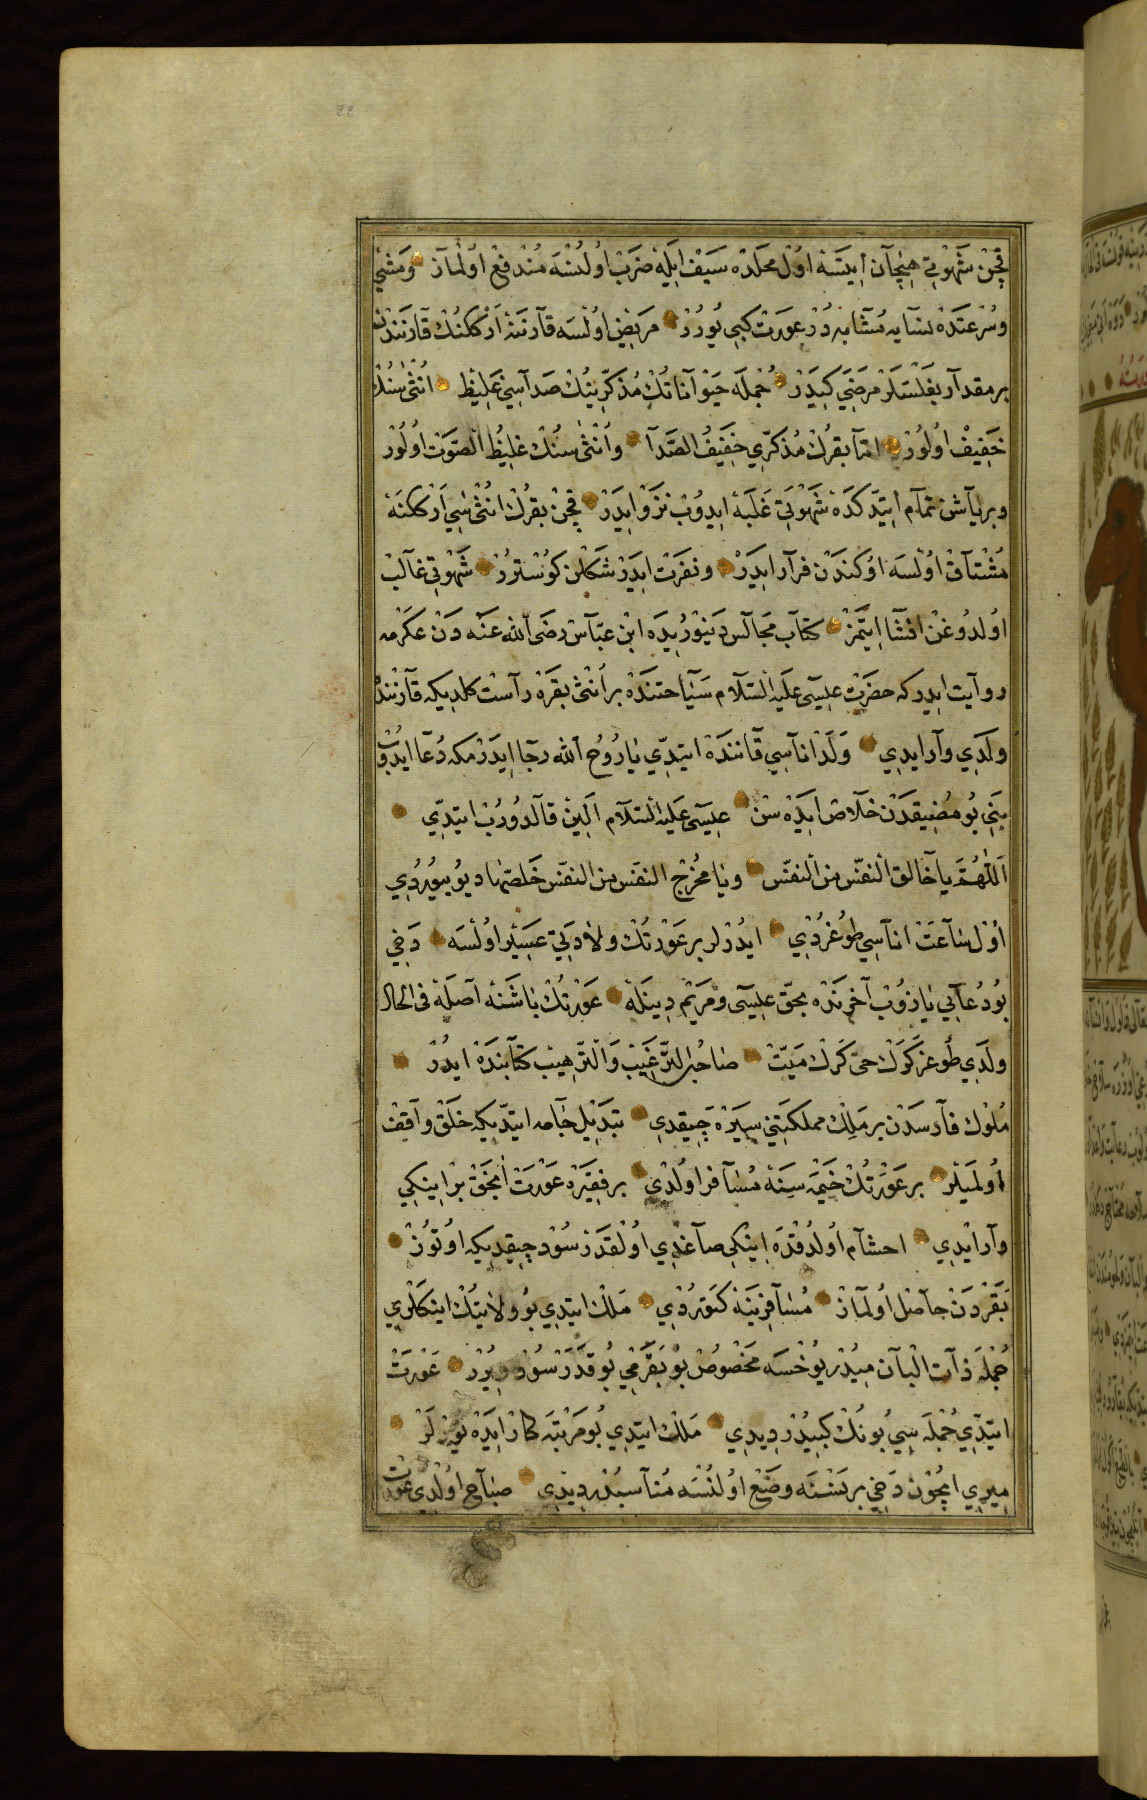 قچن شهوتی هیجان ایتسه اول محلده سیف ایله ضرب اولنسه مندفع اولماز ومشئ
وسرعتده نسایه مشابه در عورت کبی یورر مریض اولسه قارننه ارککنک قارنندن
بر مقدار بغلسلر مرضی کیدر جمله حیواناتک مذکرینک صداسی غلیظ انثی سنک
خفیف اولور اما بقرک مذکری خفیف الصدا وانثی سنک غلیظ الصوت اولور
وبر یاشن تمام ایتدکده شهوتی غلبه ایدوب نزو ایدر قچن بقرک انثی سی ارککنه
مشتاق اولسه اوکندن فرار ایدر ونفرت ایدر شکلن کوسترر شهوتی غالب
اولدوغن افشا ایتمز کتاب مجالس دینوریده ابن عباس رضی الله عنه دن عکرمه
روایت ایدر که حضرت عیسی علیه السلام سیاحتنده بر انثی بقره راست کلدیکه قارننده
ولدی وار ایدی ولد اناسی قاننده ایتدی یا روح الله رجا ایدرمکه دعا ایدوب
بنی بو مضیقدن خلاص ایده سن عیسی علیه السلام الین قالدوروب ایتدی
اللهم یا خالق النفس من النفس ویا مخرج النفس من النفس خلصها دیو بیوردی
اول ساعت اناسی طوغردی ایدرلر بر عورتک ولادتی عسیر اولسه دخی
بو دعایی یازوب آخرنده بحق عیسی ومریم دینله عورتک باشنه آصله فی الحال
ولدی طوغر کرک حی کرک میت صاحب الترغیب والترهیب کتابنده ایدر
ملوک فارسدن بر ملک مملکتنی سیره چیقدی تبدیل جامه ایتدیکه خلق واقف
اولمیلر بر عورتک خیمه سنه مسافر اولدی بر فقیره عورت انجق بر اینکی
وار ایدی احشام اولدقده اینکی صاغدی اولقدر سود چیقدیکه اوتوز
بقردن حاصل اولماز مسافرینه کتوردی ملک ایتدی بو ولایتک اینکلری
جمله ذات البان میدر یوخسه مخصوص بو بقرمی بو قدر سود ویرر عورت
ایتدی جمله سی بونک کبیدر دیدی ملک ایتدی بو مرتبه کار ایده یورلر
میری ایچون دخی بر نسنه وضع اولنسه مناسبدر دیدی صباح اولدی عورت